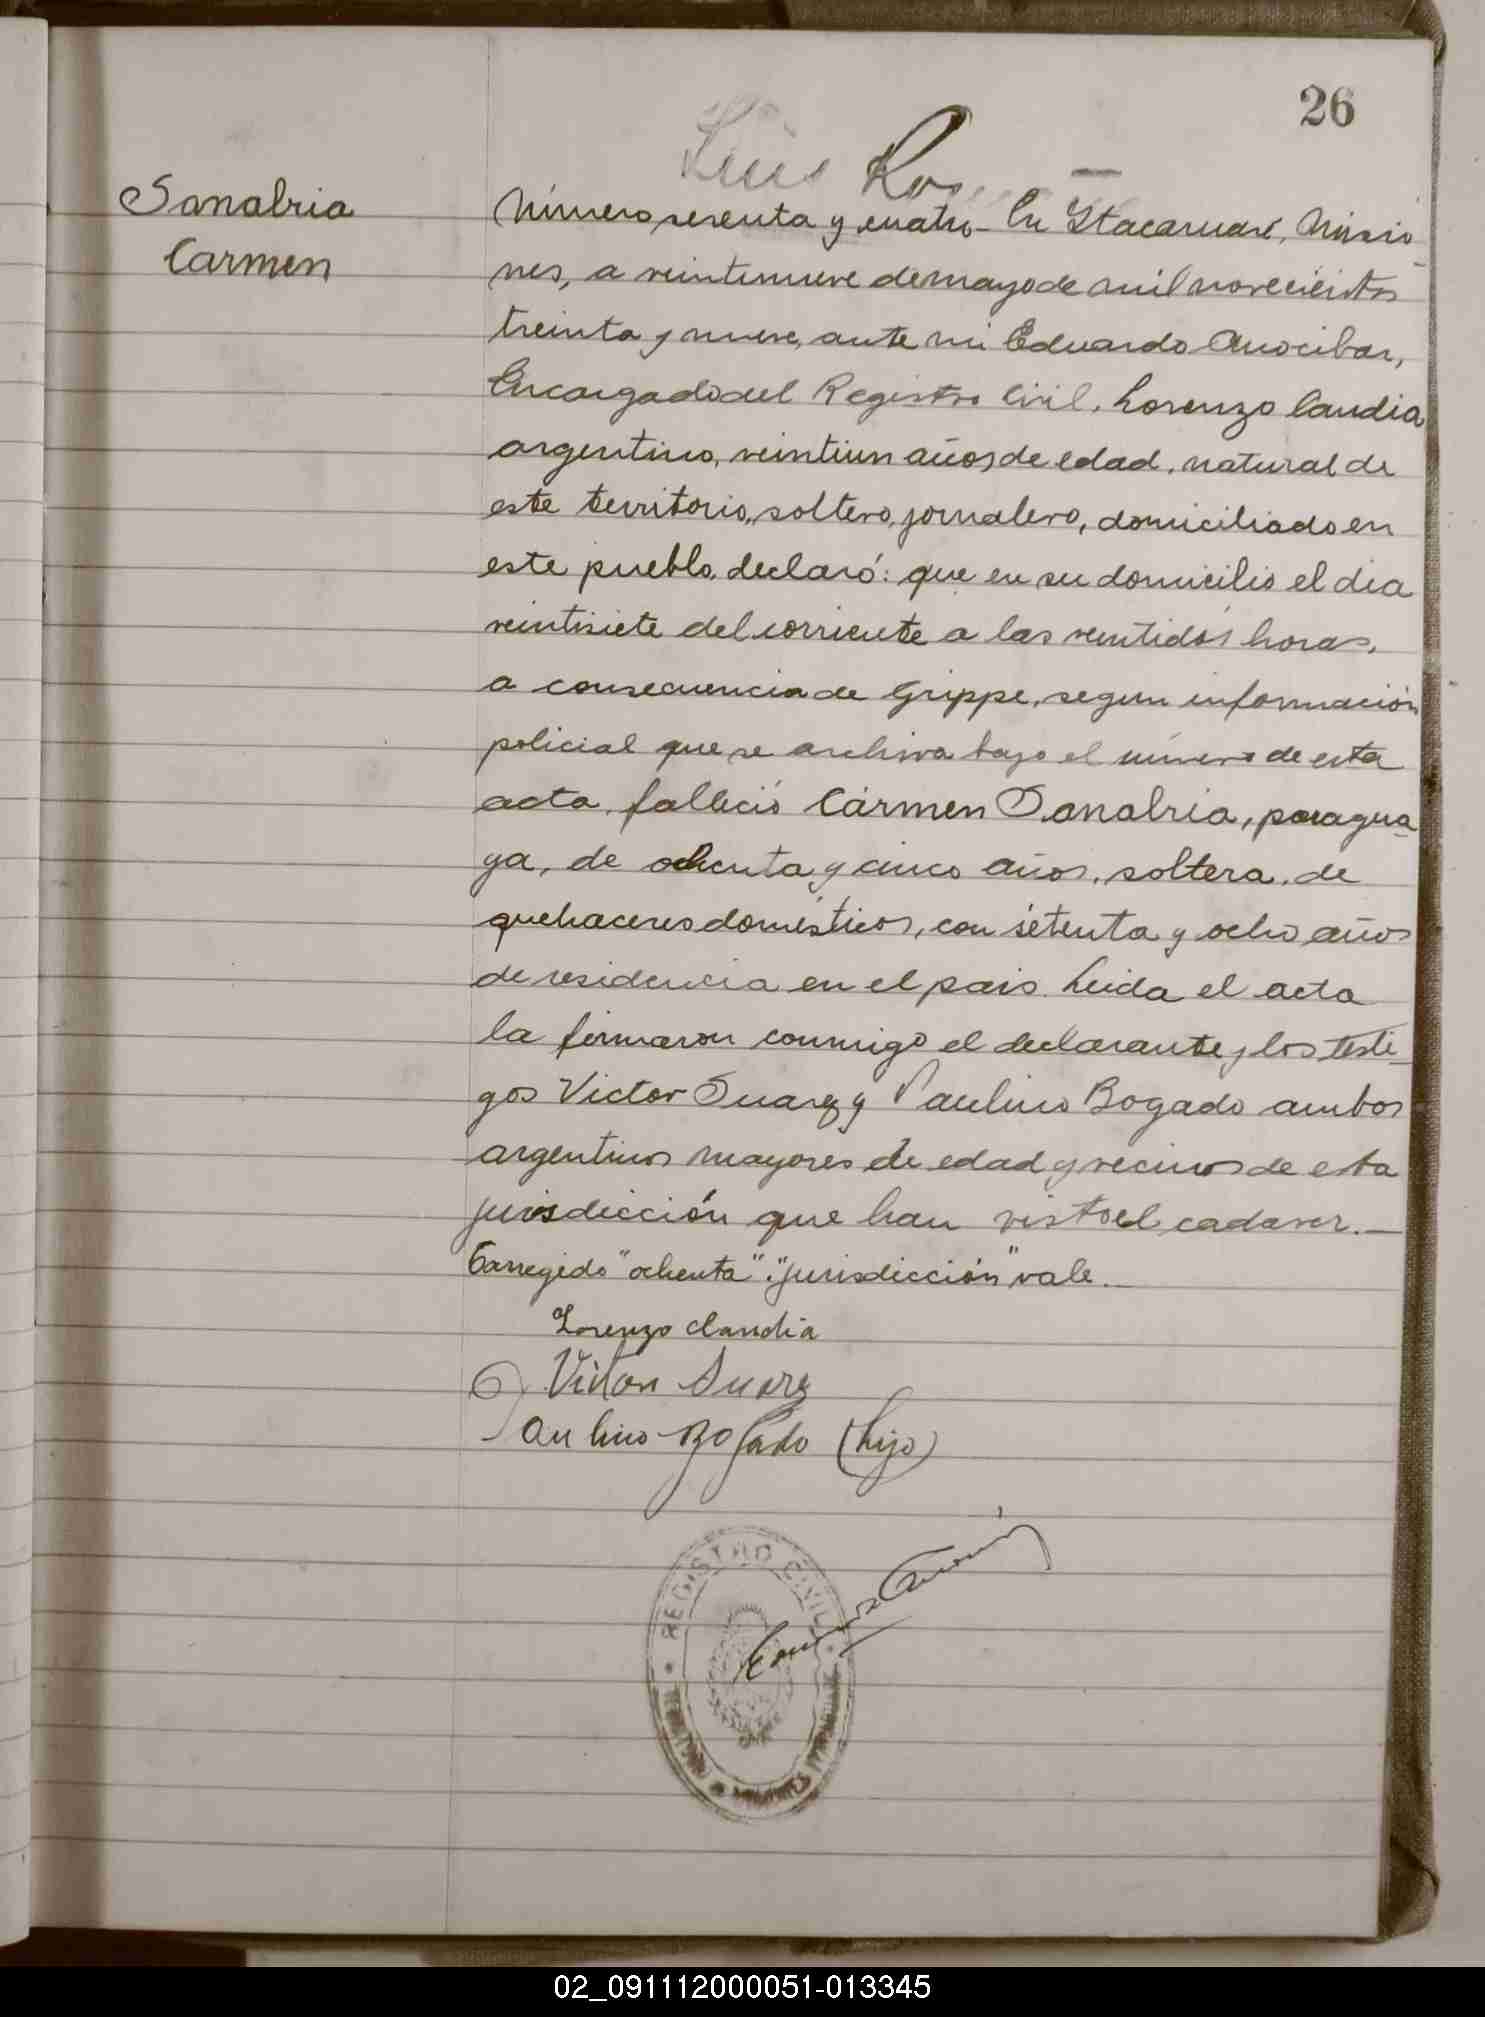 26
Luis
Sanabria
Carmen
Número sesenta y cuatro - En Itacaruaré, Misio-
nes, a veintinueve de mayo de mil novecientos
treinta y nueve, ante mi Eduardo Anocibar,
Encargado del Registro Civil, Lorenzo Candia
argentino, veintiun años de edad, natural de
este territorio, soltero, jornalero, domiciliado en
este pueblo, declaró: que en su domicilio el dia
veintisiete del corriente a las veintidós horas,
a consecuencia de Grippe, segun información
policial que se archiva bajo el número de esta
acta, falleció Cármen Sanabria, paragua-
ya, de ochenta y cinco años, soltera, de
quehaceres domésticos, con setenta y ocho años
de residencia en el pais. Leida el acta
la firmaron conmigo el declarante y los testi-
gos Victor Suarez y Paulino Bogado ambos
argentinos mayores de edad y vecinos de esta
jurisdicción que han visto el cadaver. —
Corregido "ochenta". "jurisdicción" vale. —
Lorenzo Candia
Victor Suarez
Paulino Bogado (hijo)
REGISTRO CIVIL
02_091112000051-013345